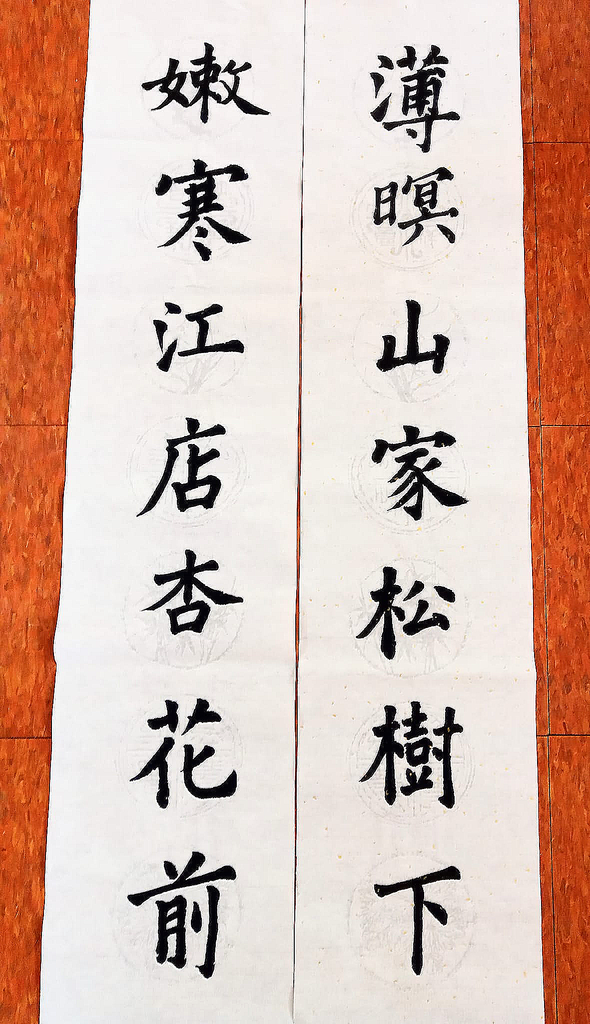 薄暝山家松樹下
嫩寒江店杏花前